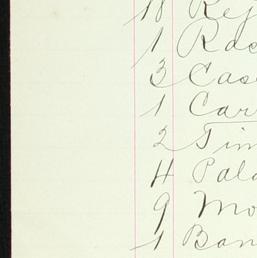 18 Rej
1 Ras
3 Cas
1 Car
2 Tim
4 Pala
9 Mo
1 Ban